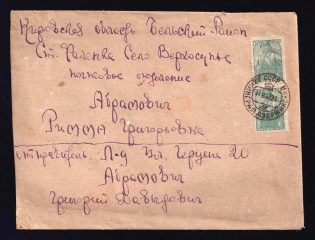 Кировская область Бельский Район
Ст. Фаленка Село Верхосунье
почтовое отделение
Абрамович
Римма Григорьевна
отправитель. Л-д Ул. Герцена 20
Абрамович
Григорий Давыдович